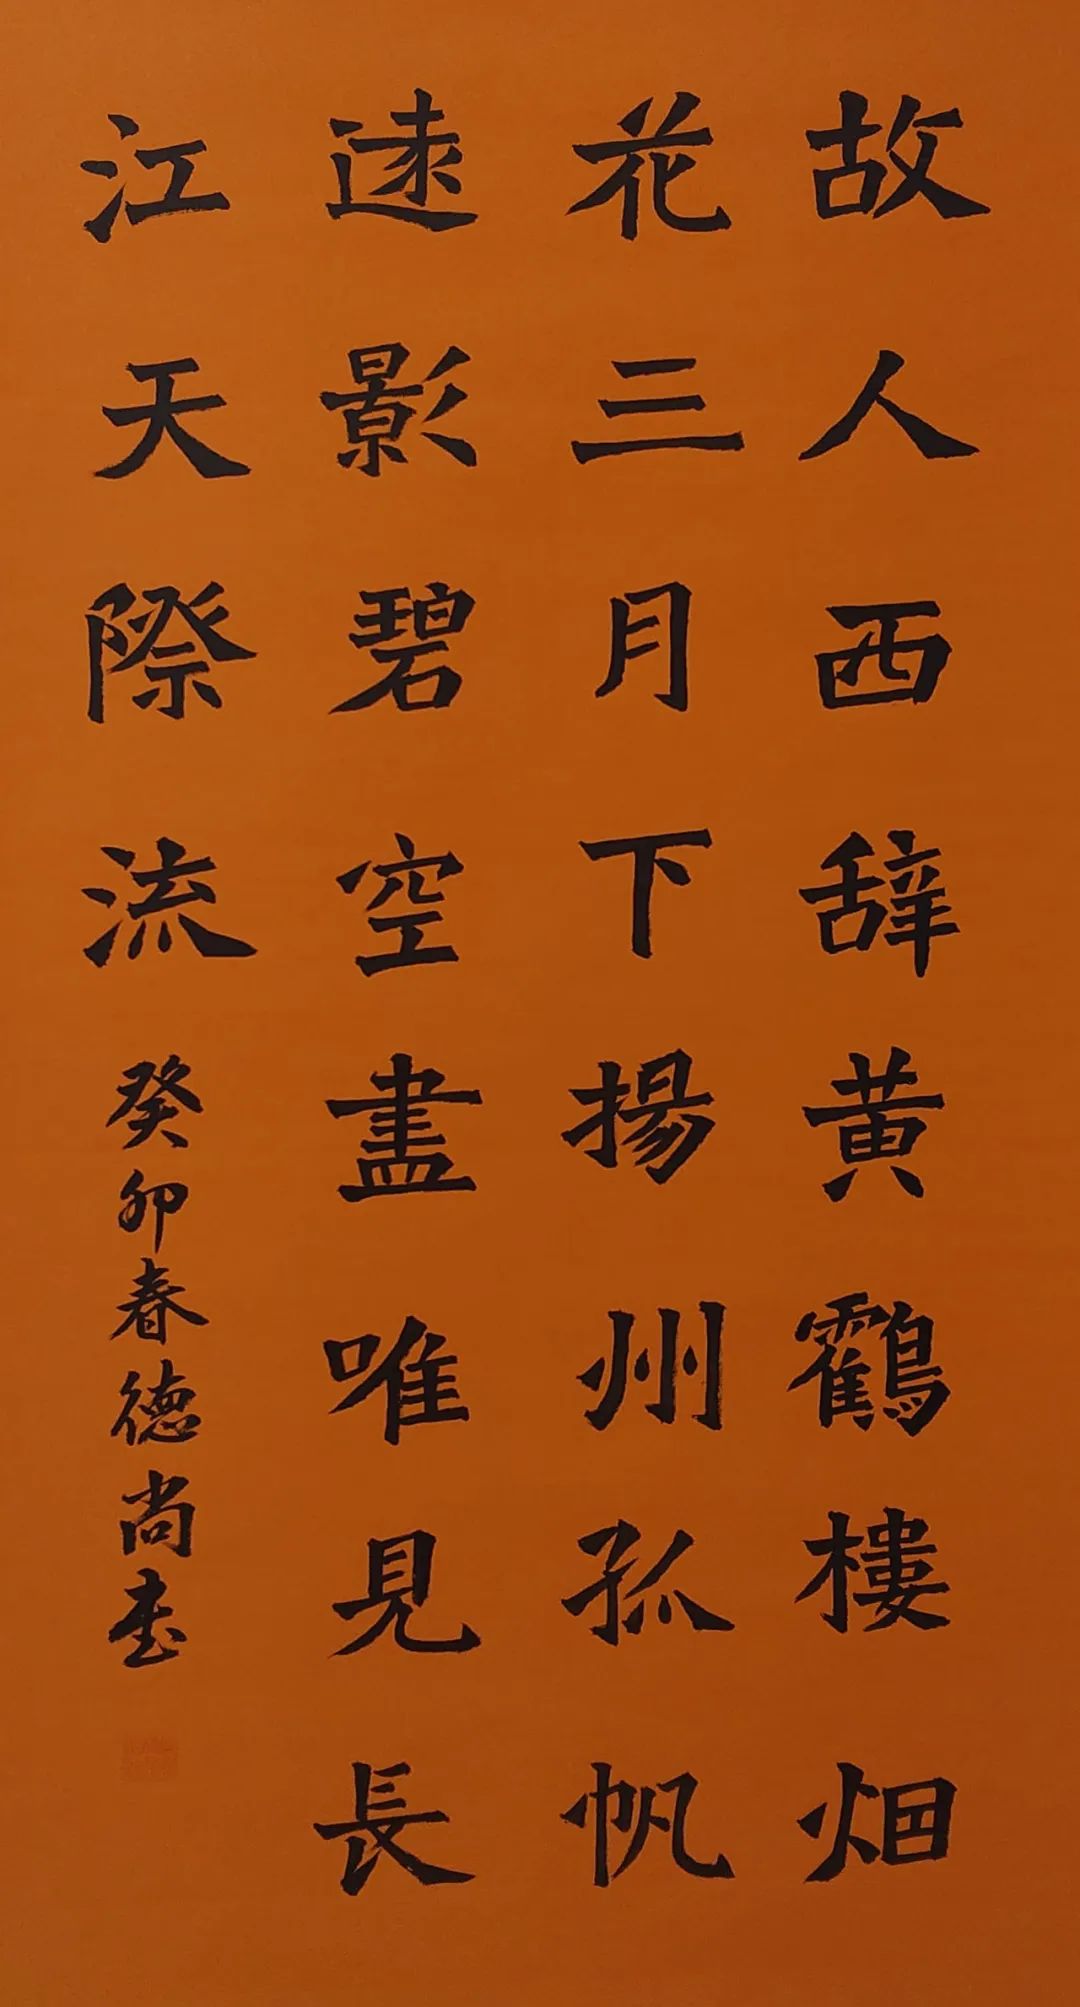 故人西辞黄鶴樓烟
花三月下揚州孤帆
遠影碧空盡唯見長
江天際流
癸卯春德尚書